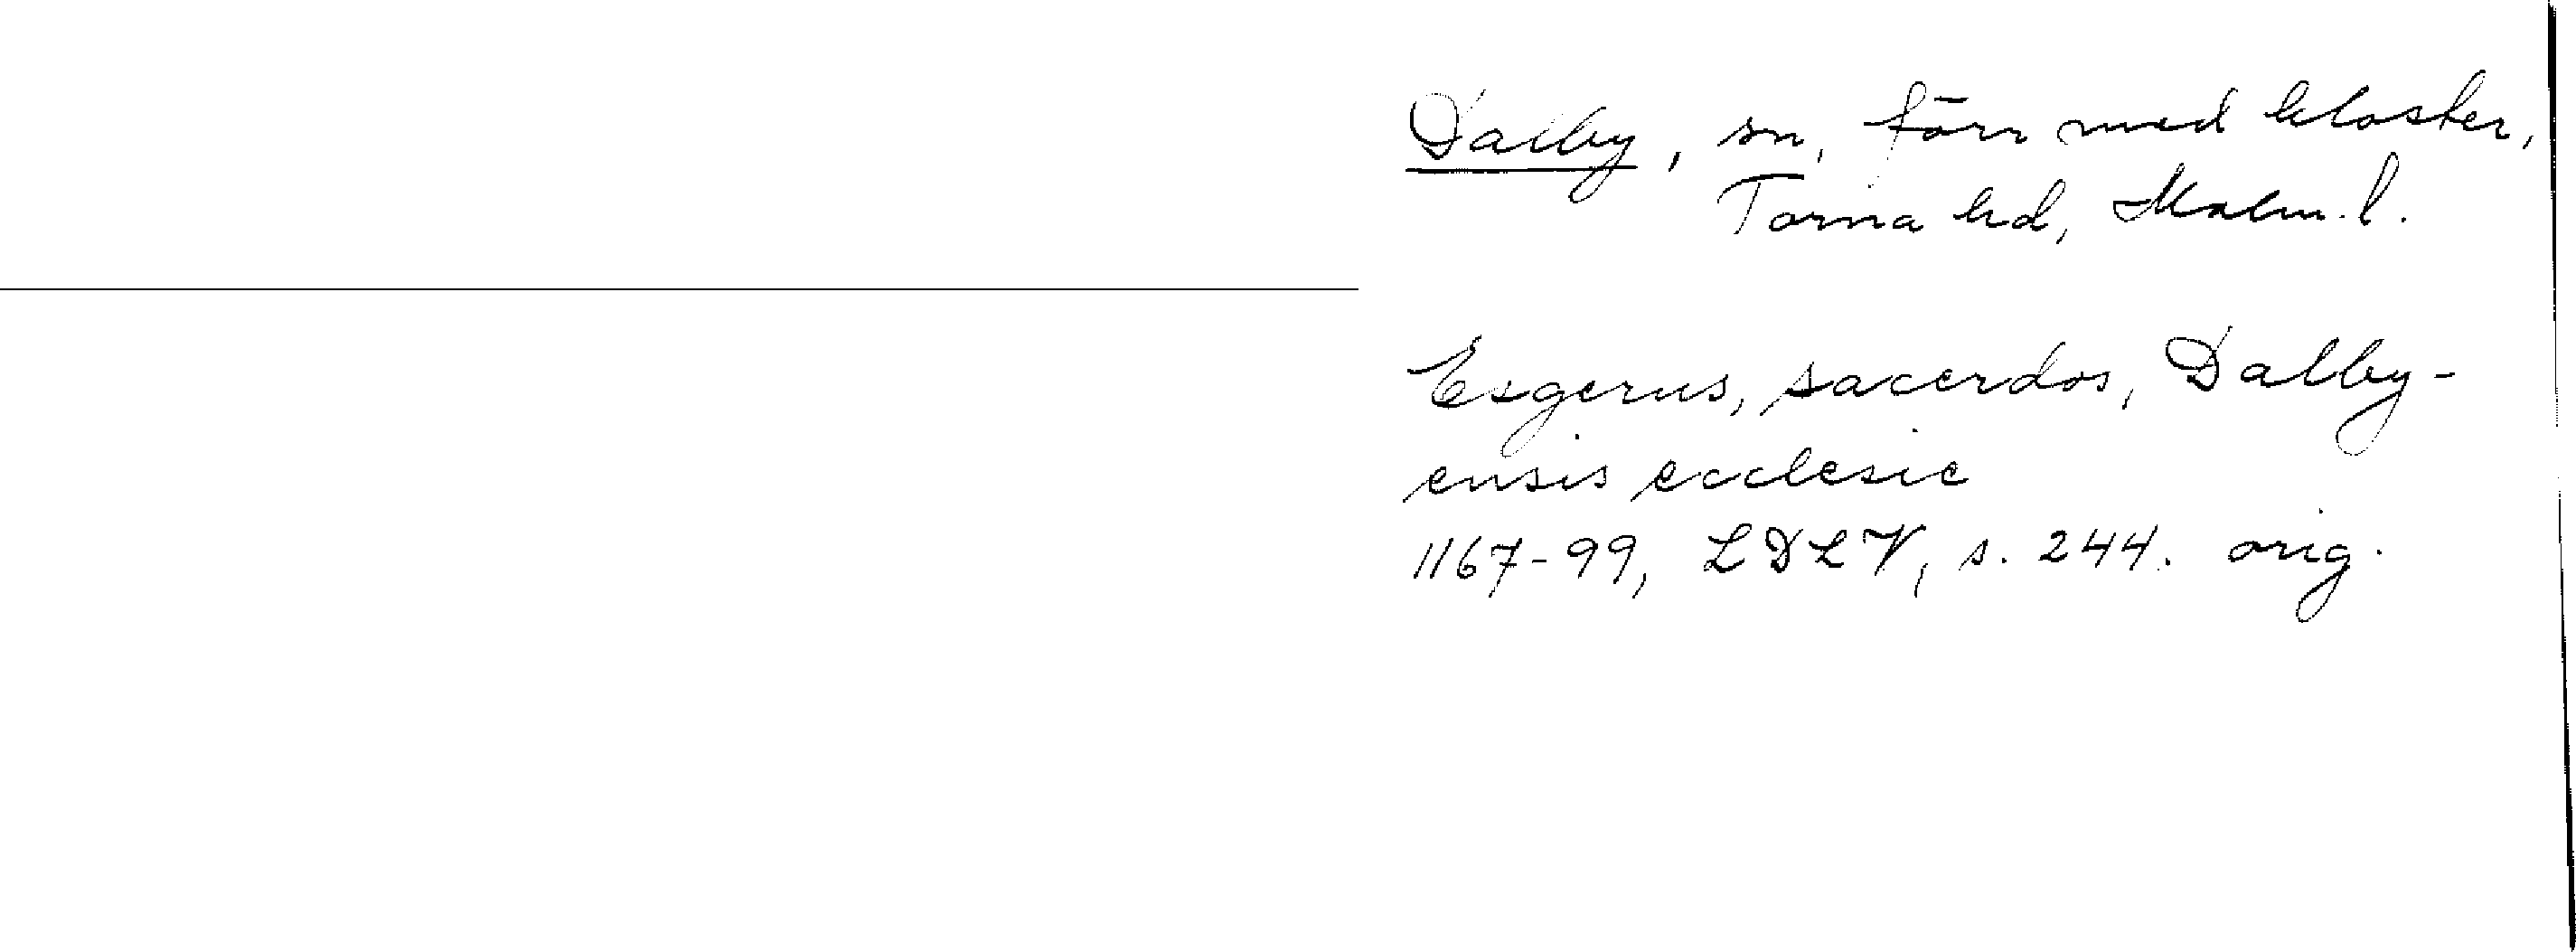 Dalby, sn, förr med kloster,
Torna hd, Malm. l.
Esgerus, sacerdos, Dalby-
ensis ecclesie
1167-99, LDLV, s. 244. orig.